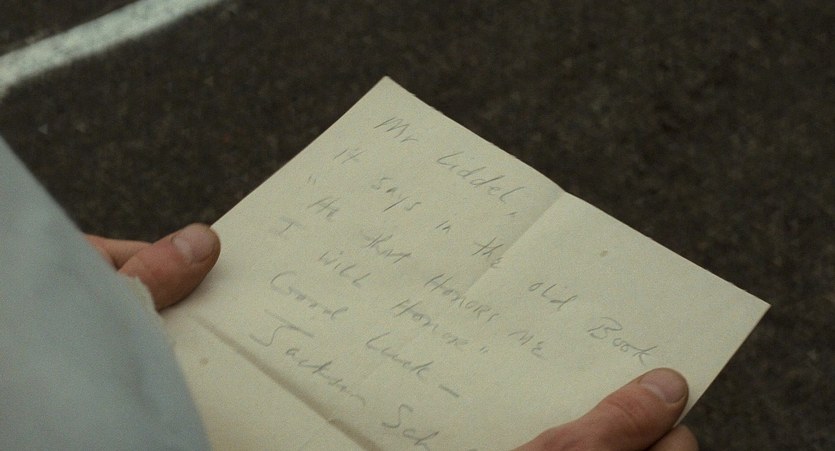 Mr Liddel,
it says in the old Book
"He that Honors Me
I will Honor"
Good Luck —
Jackson Sch